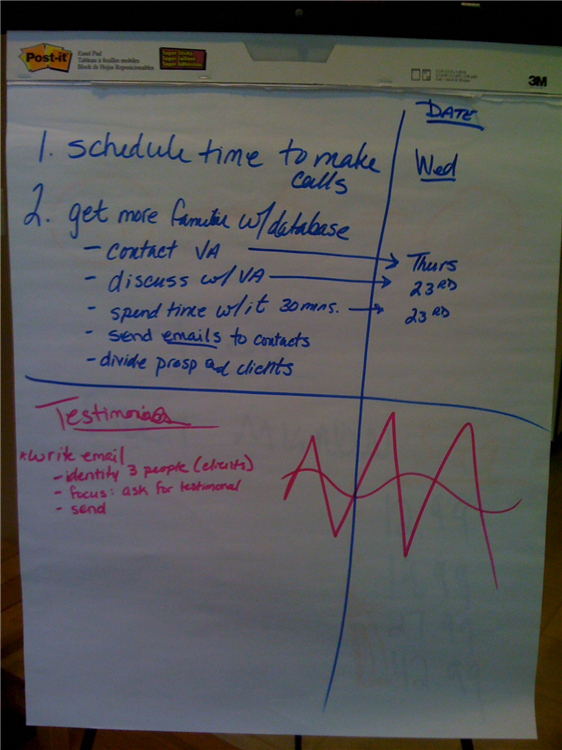 Post-it
Easel Pad
Tableau à feuilles mobiles
Block de Hojas Reposicionables
Super Sticky
3M
DATE
1. schedule time to make
calls
Wed
2. get more familiar w/database
- contact VA → Thurs
- discuss w/VA → 23RD
- spend time w/it 30 mins. → 23RD
- send emails to contacts
- divide prosp and clients
Testimonials
*write email
- identify 3 people (clients)
- focus: ask for testimonal
- send